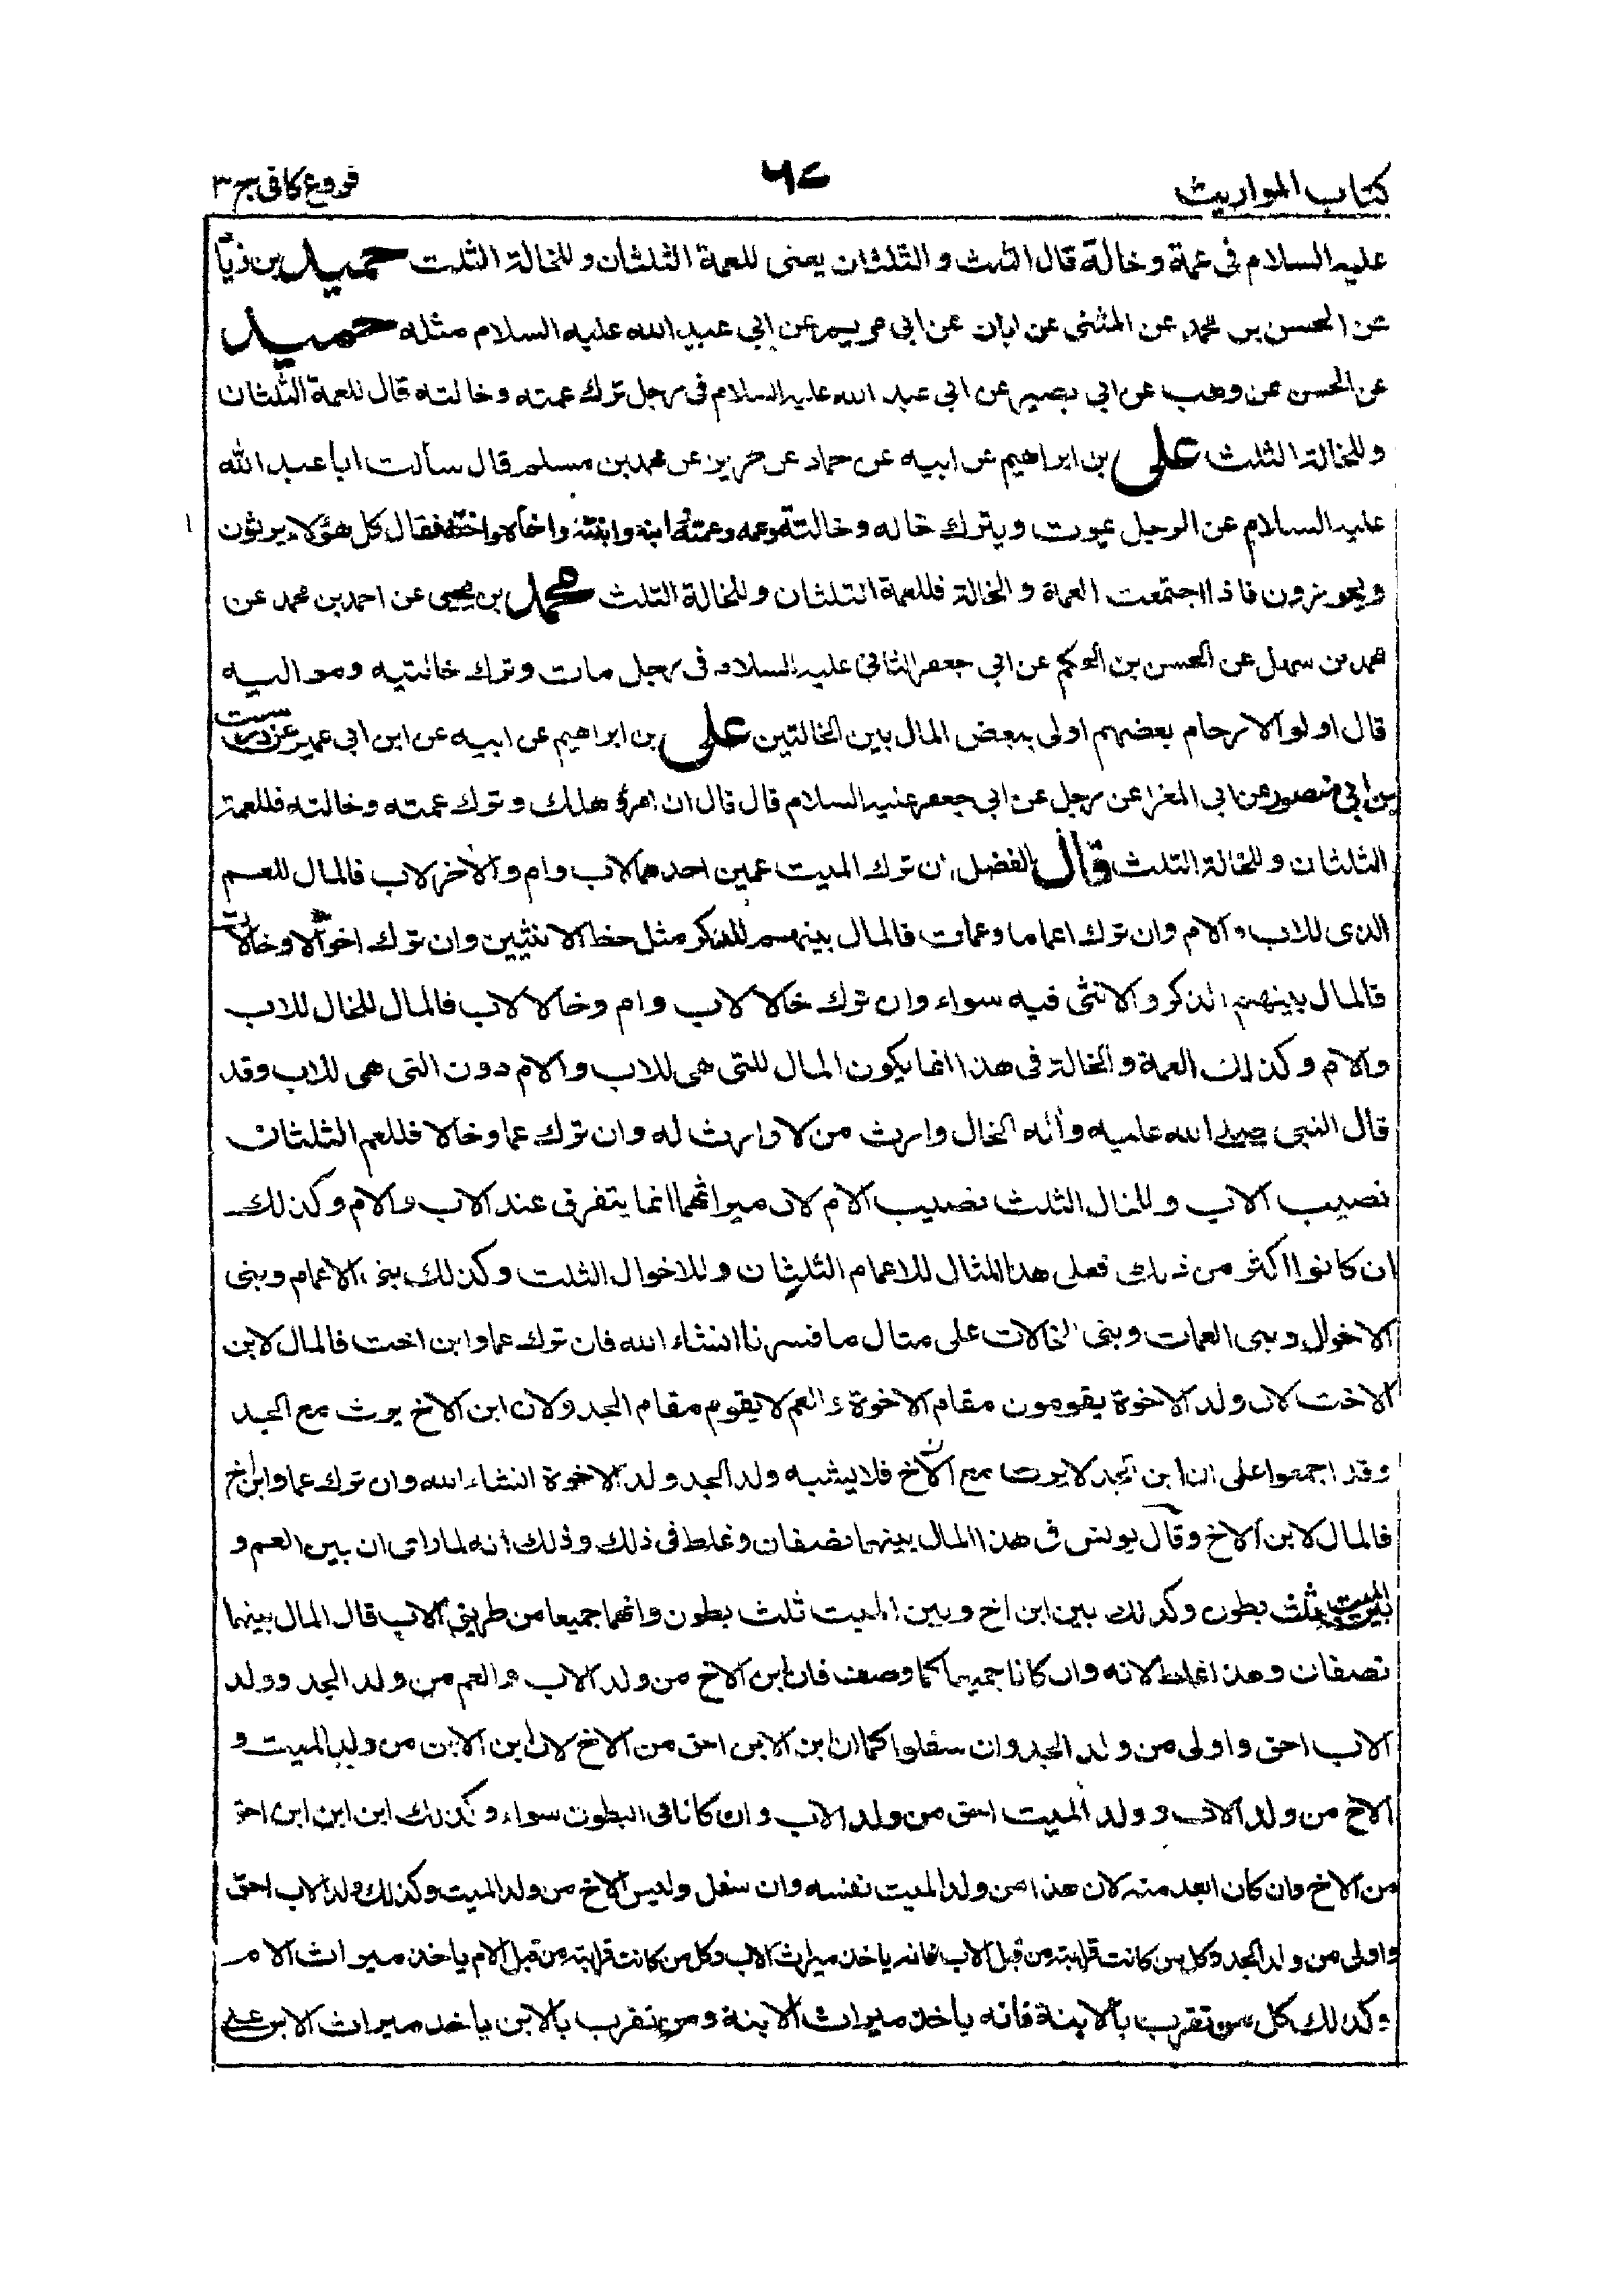 كتاب المواريث
٦٧
فروع كافى ج ٣
عليه السلام فى عمة وخالة قال الثلث و الثلثان يعنى للعمة الثلثان و للخالة الثلث حميد بن زيا
عن الحسن بن محمد عن المثنى عن ابان عن ابى مريم عن ابي عبد الله عليه السلام مثله حميد
عن الحسن عن وهب عن ابي بصير عن ابى عبد الله عليه السلام فى رجل ترك عمته وخالته قال للعمة الثلثان
وللخالة الثلث على بن ابراهيم عن ابيه عن حماد عن حريز عن محمد بن مسلم قال سألت ابا عبد الله
عليه السلام عن الرجل يموت ويترك خاله وخالته وعمه وعمته وابنه وابنته واخاه واخته فقال كل هؤلاء يرثون
ويحوزون فاذا اجتمعت العمة و الخالة فللعمة الثلثان وللخالة الثلث محمد بن يحيى عن احمد بن محمد عن
محمد بن سهل عن الحسن بن الحكم عن ابي جعفر الثاني عليه السلام فى رجل مات وترك خالتيه ومواليه
قال اولوا الارحام بعضهم اولى ببعض المال بين الخالتين على بن ابراهيم عن ابيه عن ابن ابي عمير عن درست
بن ابي منصور عن ابي المغرا عن رجل عن ابي جعفر عليه السلام قال قال ان امرؤ هلك وترك عمته وخالته فللعمة
الثلثان وللخالة الثلث قال الفضل ان ترك الميت عمين احدهما لاب وام والآخر لاب فالمال للعم
الذى للاب والام وان ترك اعماما وعمات فالمال بينهم للذكر مثل حظ الانثيين وان ترك اخوالا وخالات
فالمال بينهم الذكر والانثى فيه سواء وان ترك خالا لاب وام وخالا لاب فالمال للخال للاب
والام وكذلك العمة والخالة فى هذا انما يكون المال للتى هى للاب والام دون التى هى للاب وقد
قال النبى صلى الله عليه وآله الخال وارث من لا وارث له وان ترك عما وخالا فللعم الثلثان
نصيب الاب وللخال الثلث نصيب الام لان ميراثهما انما يتفرق عند الاب والام وكذلك
ان كانوا اكثر من ذلك فعلى هذا المثال للاعمام الثلثان وللاخوال الثلث وكذلك بنى الاعمام وبنى
الاخوال وبنى العمات وبنى الخالات على مثال ما فسرنا انشاء الله فان ترك عما وابن اخت فالمال لابن
الاخت لان ولد الاخوة يقومون مقام الاخوة والعم لا يقوم مقام الجد ولان ابن الاخ يرث مع الجد
وقد اجمعوا على ان ابن الجد لا يرث مع الاخ فلا يشبه ولد الجد ولد الاخوة انشاء الله وان ترك عما وابن اخ
فالمال لابن الاخ وقال يونس فى هذا المال بينهما نصفان وغلط فى ذلك وذلك أنه لما راى ان بين العم و
بين الميت ثلث بطون وكذلك بين ابن اخ وبين الميت ثلث بطون وانهما جميعا من طريق الاب قال المال بينهما
نصفان وهذا غلط لانه وان كانا جميعا كما وصف فان ابن الاخ من ولد الاب والعم من ولد الجد وولد
الاب احق واولى من ولد الجد وان سفلوا كما ان ابن الابن احق من الاخ لان ابن الابن من ولد الميت و
الاخ من ولد الاب وولد الميت احق من ولد الاب وان كانا فى البطون سواء وكذلك ابن ابن ابن احق
من الاخ وان كان ابعد منه لان هذا من ولد الميت نفسه وان سفل وليس الاخ من ولد الميت وكذلك ولد الاب احق
واولى من ولد الجد وكل من كانت قرابته من قبل الاب فانه ياخذ ميراث الاب وكل من كانت قرابته من قبل الام ياخذ ميراث الام
وكذلك كل من تقرب بالابنة فانه ياخذ ميراث الابنة ومن تقرب بالابن ياخذ ميراث الابن على